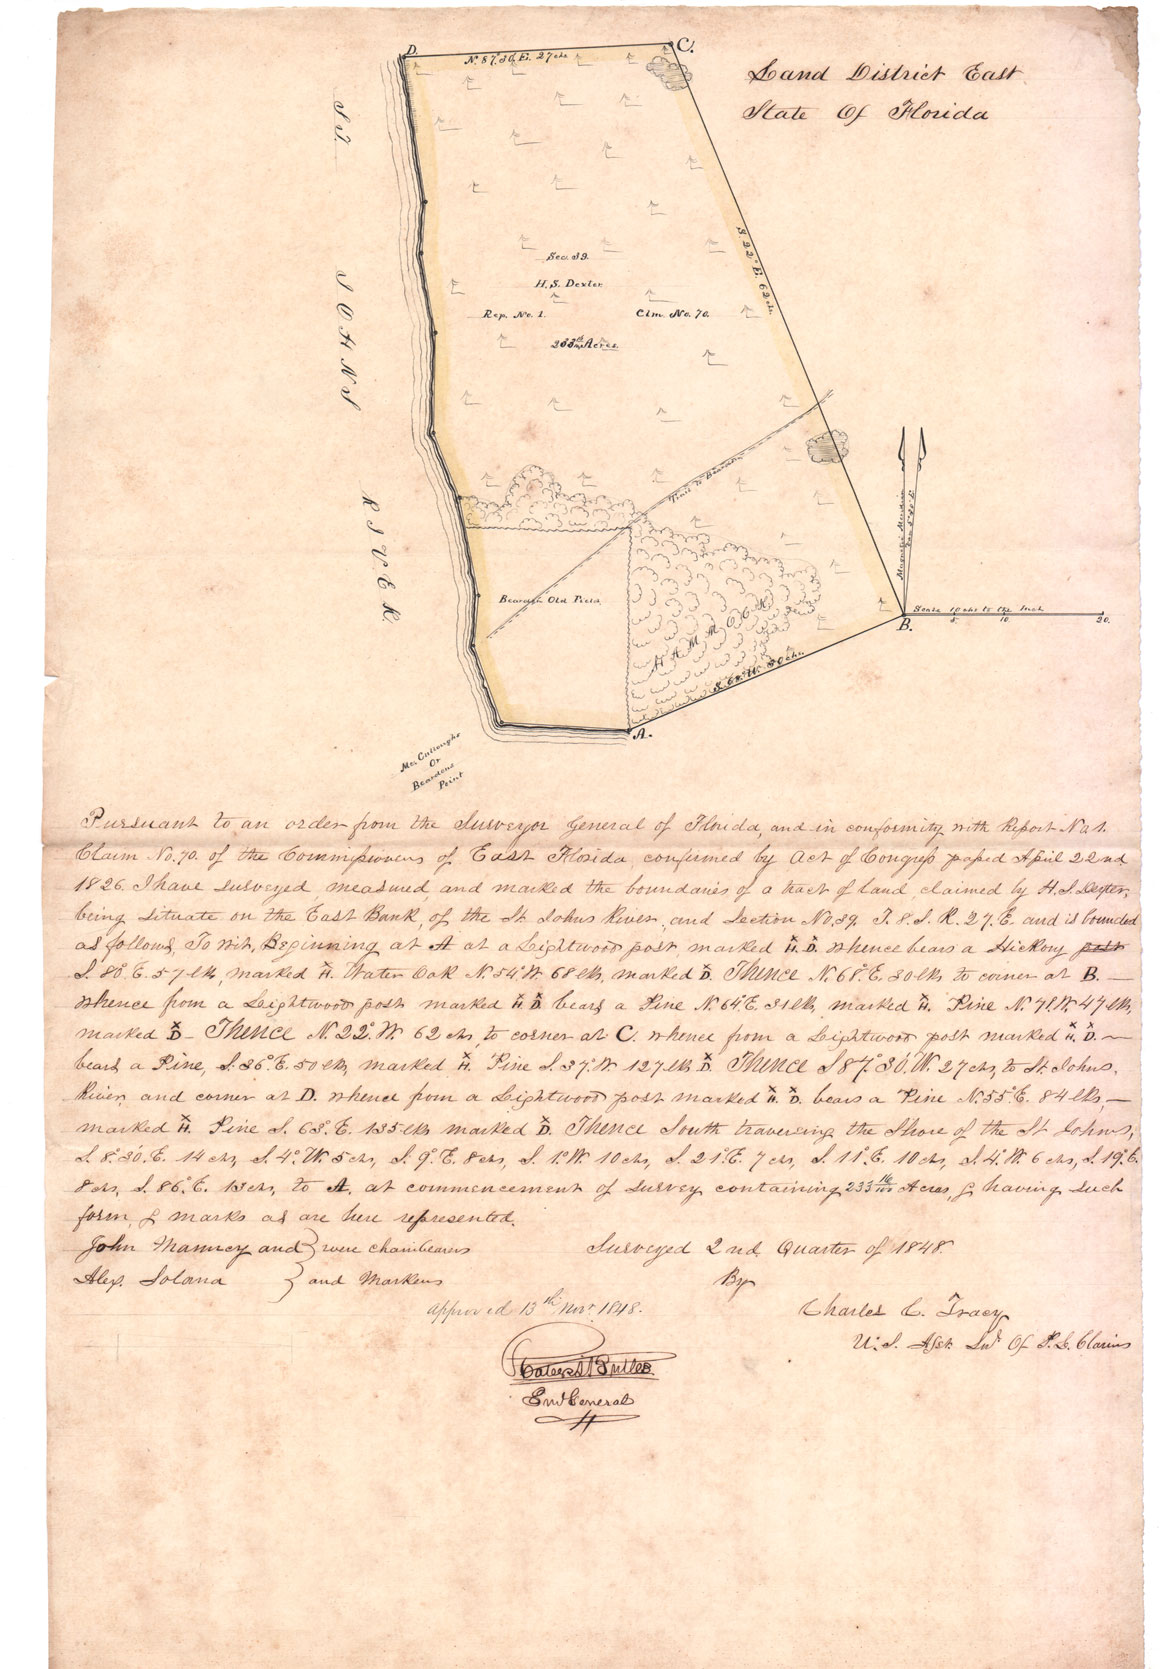 Land District East
State Of Florida
D.
N. 87° 30. E. 27 chs.
C.
S. 22° E. 62 ch.
St. JOHNS RIVER
Sec. 39.
H. S. Dexter
Rep. No. 1. Clm. No. 70.
233 16/100 Acres.
Trail to Beardens
Bearden Old Field
HAMMOCK
S. 68° W. 30 chs.
A.
B.
Magnetic Meridian
Scale 10 chs to the Inch
5. 10. 20.
Mc. Culloughs
Or
Beardens
Point
Pursuant to an order from the Surveyor General of Florida, and in conformity with Report No 1.
Claim No. 70. of the Commissioners of East Florida, confirmed by Act of Congress passed April 22nd.
1826. I have surveyed, measured, and marked the boundaries of a tract of land, claimed by H. S. Dexter,
being situate on the East Bank, of the St Johns River, and Section No. 39. T. 8. S. R. 27. E. and is bounded
as follows, To Wit, Beginning at A at a Lightwood post marked H. D. whence bears a Hickory post
S. 80° E. 57 lks, marked H. Water Oak N. 54° W. 68 lks, marked D. Thence N. 68° E. 30 lks to corner at B. —
whence from a Lightwood post marked H D. bears a Pine N. 64° E. 31 lks, marked H. Pine N. 78° W. 47 lks,
marked D — Thence N. 22° W. 62 chs, to corner at C. whence from a Lightwood post marked H. D. —
bears a Pine, S. 36° E. 50 lks, marked H. Pine S. 37° W 127 lks D. Thence S 87° 30. W. 27 chs, to St Johns,
River, and corner at D. whence from a Lightwood post marked H. D. bears a Pine N. 55° E. 84 lks, —
marked H. Pine S. 63° E. 135 lks marked D. Thence South traversing the Shore of the St Johns,
S 8° 30. E. 14 chs, S. 4° W. 5 chs, S. 9° E. 8 chs, S. 1° W. 10 chs, S. 21° E. 7 chs, S. 11° E. 10 chs, S. 4° W. 6 chs, S. 19° E.
8 chs, S. 86° E. 13 chs, to A. at commencement of survey containing 233 16/100 Acres, & having such
form, & marks as are here represented.
John Manucy and } were chainbearers
Alex. Solana } and Markers
Surveyed 2nd. Quarter of 1848.
By
approved 13th Novr 1848.
Charles C. Tracy
U. S. Asst. Sur. Of P. L. Claims
Sur General